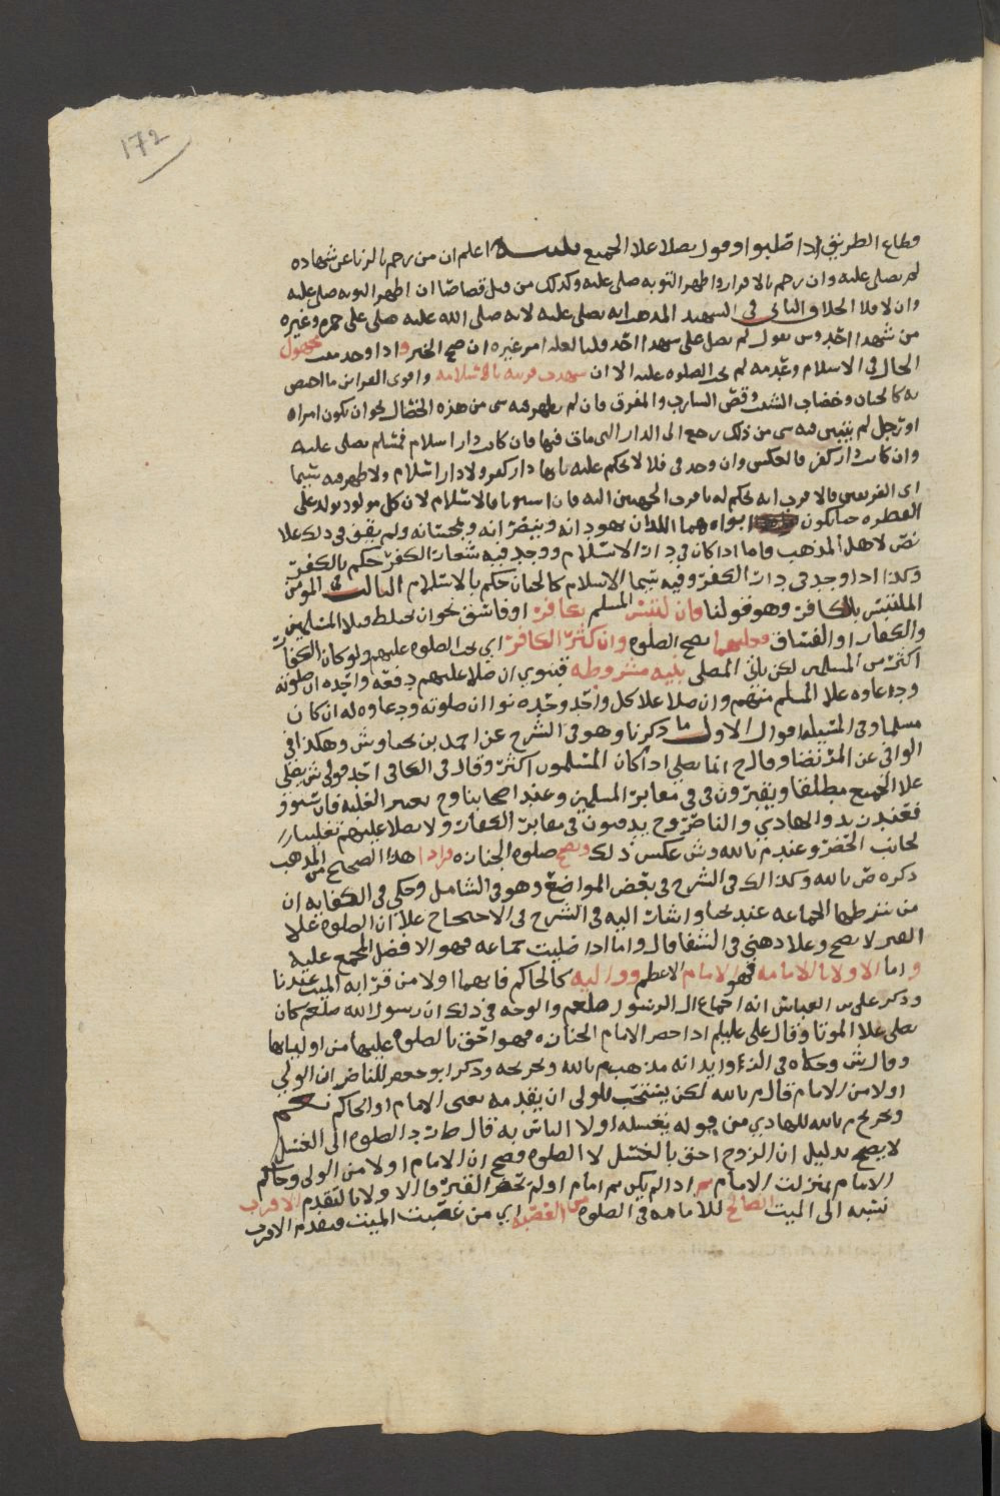 ١٧٢
قطاع الطريق اذا صلبوا او قول يصلا علا الجميع تنبيه اعلم ان من رجم بالزنا عن شهاده
لم يصلى عليه وان رجم بالاقرار واظهر التوبه صلى عليه وكذلك من قتل قصاصا ان اظهر التوبه صلى عليه
وان لا فلا الخلاف الثاني في الشهيد المذهب انه يصلى عليه لانه صلى الله عليه صلى على حمزه وغيره
من شهدا احد وس يقول لم يصل على شهدا احد قلنا لعله امر غيره ان صح الخبر واذا وجد ميت مجهول
الحال في الاسلام وعدمه لم تجز الصلوه عليه الا ان شهدت قرينه بالاسلامه واقوى القراين ما اختص
به كالختان وخضاب الشيب وقص الشارب والمفرق فان لم يظهر فيه شي من هذه الخصال نحو ان يكون امراه
او رجل لم يتبين فيه شي من ذلك رجع الى الدار التي مات فيها فان كانت دار اسلام فمسلم يصلى عليه
وان كانت دار كفر فالعكس وان وجد في فلا لا يحكم عليه بانها دار كفر ولا دار اسلام ولا ظهر فيه سيما
اي الفريقين فالاقرب انه يحكم له باقرب الجهتين اليه فان استويا فالاسلام لان كل مولود يولد على
الفطره حتا يكون ابواه هما اللذان يهودانه وينصرانه ويمجسانه ولم يقف في ذلك علا
نص لاهل المذهب فاما اذا كان في دار الاسلام ووجد فيه شعار الكفر حكم بالكفر
وكذا اذا وجد في دار الكفر وفيه سيما الاسلام كالختان حكم بالاسلام الثالث المؤمن
الملتبس بالكافر وهو قولنا فان لتبس المسلم بكافر او فاسق نحو ان يختلط قتلا المسلمين
والكفار او الفساق فعليهما تصح الصلوه وان كثر الكافر اي تجز الصلوه عليهم ولو كان الكفار
اكثر من المسلمين لكن ياتي المصلي بنيه مشروطه فينوي ان صلا عليهم دفعه واحده ان صلوته
ودعاوه علا المسلم منهم وان صلا علا كل واحد وحده نوا ان صلوته ودعاوه له ان كان
مسلما وفي المسيله اقوال الاول ما ذكرنا وهو في الشرح عن احمد بن يحيا وش وهكذا في
الوافي عن المرتضا وقال ح انما يصلي اذا كان المسلمون اكثر وقال في الكافي احد قولي ش يصلي
علا الجميع مطلقا ويقبرون في مقابر المسلمين وعند اصحابنا وح يعتبر الغلبه فان ستووا
فعند زيد والهادي والناصر وح يدفنون في مقابر الكفار ولا يصلا عليهم تغليبا
لجانب الحضر وعند م بالله وش عكس ذلك وتصح صلوه الجنازه فرادا هذا الصحاح من المذهب
ذكره ض بالله وكذالك في الشرح في بعض المواضع وهو في الشامل وحكى في الكفايه ان
من شرطها الجماعه عند يحيا واشار اليه في الشرح في الاحتجاج علا ان الصلوه علا
القبر لا تصح وعلا ذهني في الشفا قال واما اذا صليت جماعه فهو الافضل المجمع عليه
واما الاولا بالامامه فهو الامام الاعظم وواليه كالحاكم فايهما اولا من قرابه الميت عندنا
وذكر على بن العباس انه اجماع ال الرسول صلعم والوجه في ذلك ان رسول الله صلعم كان
يصلي علا الموتا وقال علي عليلم اذا حضر الامام الجنازه فهو احق بالصلوه عليها من اوليايها
وقال ش وحكاه في الزوايد انه مذهب م بالله وتخريجه وذكر ابو جعفر للناصر ان الولي
اولا من الامام قال م بالله لكن يستحب للولي ان يقدمه يعني الامام او الحاكم نعم
وتخريج م بالله للهادي من قوله يغسله اولا الناس به قال ط د الصلوه الى الغسل
لا يصح بدليل ان الزوج احق بالغسل لا الصلوه فصح ان الامام اولا من الولي وحاكم
الامام بمنزلت الامام اذا لم يكن ثم امام او لم تحضر القبر فالاولا بالتقدم الاقرب
نسبه الى الميت الصالح للامامه في الصلوه من العصبه اي من عصبت الميت فيقدم الاقرب